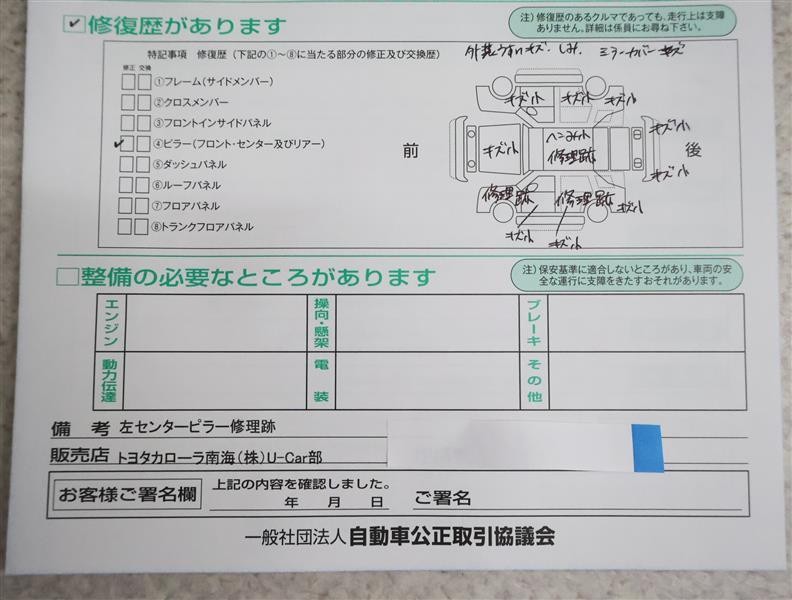 ✓ 修復歴があります
注）修復歴のあるクルマであっても、走行上は支障ありません。詳細は係員にお尋ね下さい。
特記事項　修復歴（下記の①〜⑧に当たる部分の修正及び交換歴）
外装うすいキズ・しみ、ミラーカバーキズ
修正 交換
①フレーム（サイドメンバー）
②クロスメンバー
③フロントインサイドパネル
✓ ④ピラー（フロント・センター及びリアー）
⑤ダッシュパネル
⑥ルーフパネル
⑦フロアパネル
⑧トランクフロアパネル
前
後
キズ小 キズ小 キズ小
キズ小
キズ小 ヘコみ小
修理跡
キズ小
修理跡 修理跡 キズ小
キズ小 キズ小
整備の必要なところがあります
注）保安基準に適合しないところがあり、車両の安全な運行に支障をきたすおそれがあります。
エンジン
操向・懸架
ブレーキ
動力伝達
電装
その他
備考 左センターピラー修理跡
販売店 トヨタカローラ南海（株）U-Car部
お客様ご署名欄
上記の内容を確認しました。
年 月 日 ご署名
一般社団法人 自動車公正取引協議会